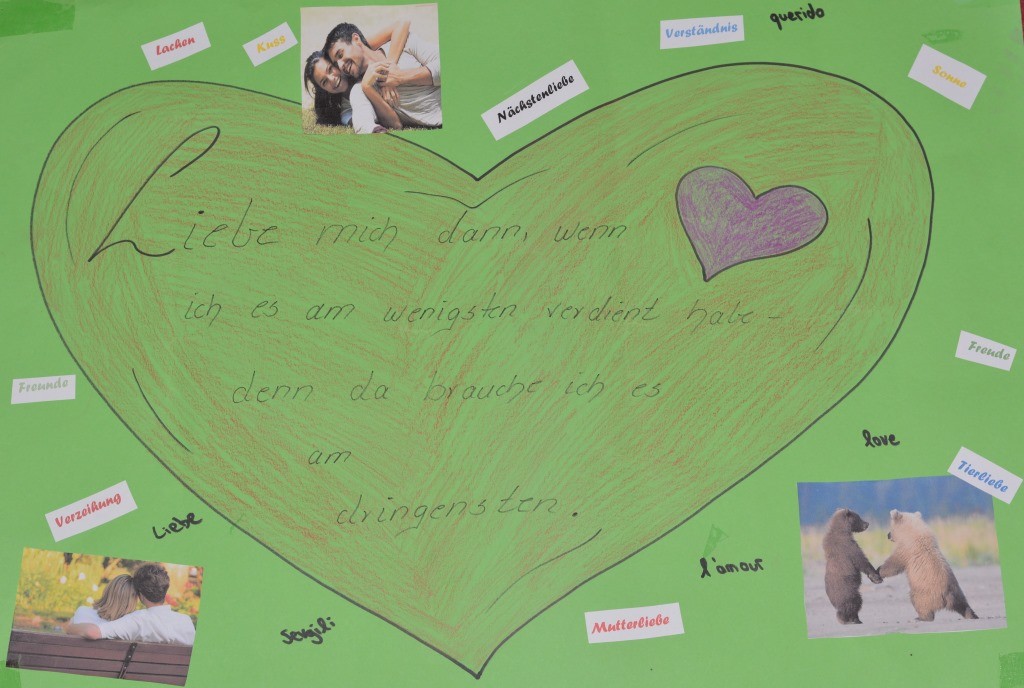 Lachen
Kuss
Verständnis
querido
Sonne
Nächstenliebe
Liebe mich dann, wenn
ich es am wenigsten verdient habe –
denn da brauche ich es
am
dringensten.
Freunde
Freude
love
Tierliebe
Verzeihung
Liebe
l'amour
Mutterliebe